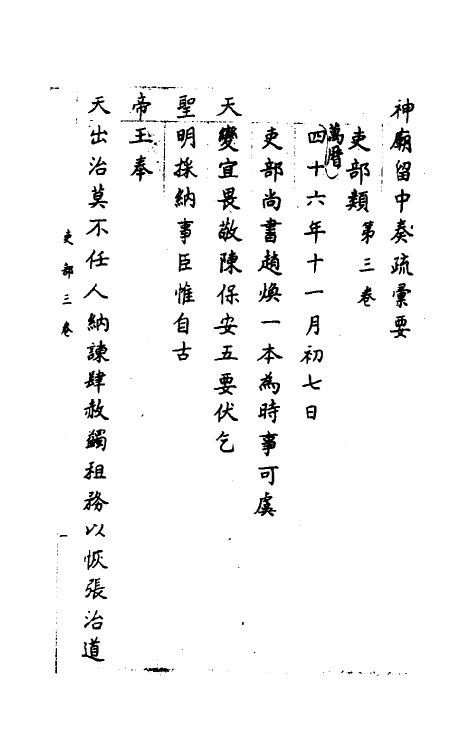 神廟留中奏疏彙要
吏部類 第三卷
萬曆
四十六年十一月初七日
吏部尚書趙煥一本為時事可虞
天變宜畏敬陳保安五要伏乞
聖明採納事臣惟自古
帝王奉
天出治莫不任人納諫肆赦蠲租務以恢張治道
吏部三卷